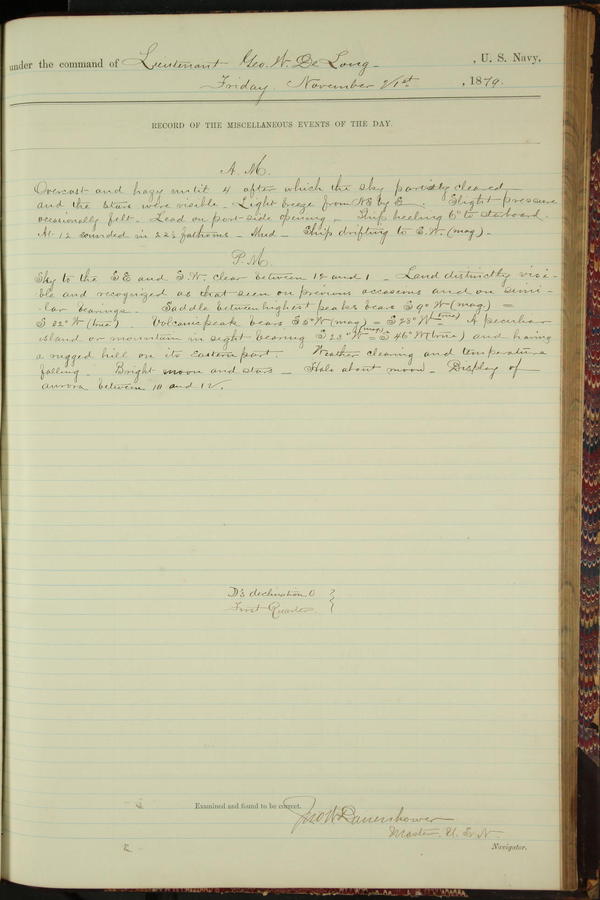 under the command of Lieutenant Geo. W. De Long , U. S. Navy,
Friday, November 21st , 1879.
RECORD OF THE MISCELLANEOUS EVENTS OF THE DAY.
A. M.
Overcast and hazy until 4 after which the sky partially cleared
and the stars were visible. Light breeze from NE by E. Slight pressure
occasionally felt. Lead on port side opening. Ship heeling 6° to starboard.
At 12 sounded in 22½ fathoms. Mud. Ship drifting to S.W. (mag).
P. M.
Sky to the SE and S.W. clear between 12 and 1. Land distinctly visi-
ble and recognized as that seen on previous occasions and on simi-
lar bearings. Saddle between highest peaks bears S 9° W (mag) =
S 32° W (true) Volcanic peak bears S 5° W (mag) = S 28° W (true) A peculiar
island or mountain in sight bearing S 23° W (mag) = S 46° W (true) and having
a rugged hill on its Eastern part. Weather clearing and temperature
falling. Bright moon and stars. Halo about moon. Display of
aurora between 10 and 12.
D's declination 0
First Quarter
Examined and found to be correct.
Jno W Danenhower
Master, U. S. N.
Navigator.